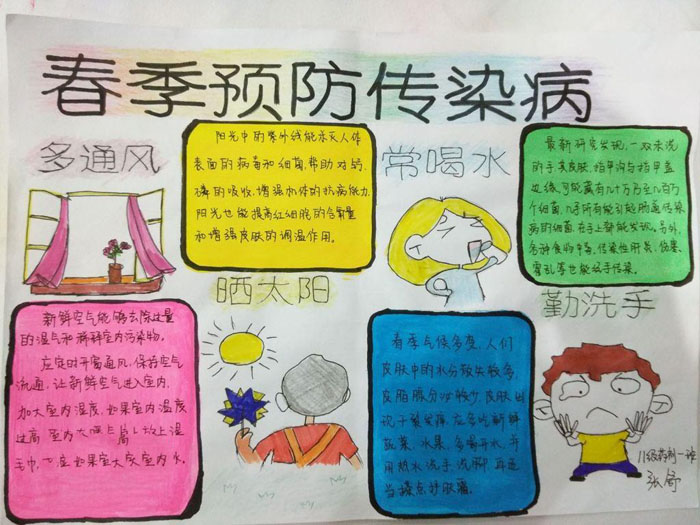 春季预防传染病
多通风
阳光中的紫外线能杀灭人体
表面的病毒和细菌,帮助对钙、
磷的吸收,增强机体的抗病能力,
阳光也能提高红细胞的含氧量
和增强皮肤的调温作用。
常喝水
最新研究发现,一双未洗
的手其皮肤,指甲沟与指甲盖
边缘,可能藏有几十万乃至几百万
个细菌,几乎所有能引起肠道传染
病的细菌,在手上都能发现。另外,
各种食物中毒,传染性肝炎,伤寒,
霍乱等也能经手传染。
晒太阳
勤洗手
新鲜空气能够去除过量
的湿气和稀释室内污染物。
应定时开窗通风,保持空气
流通,让新鲜空气进入室内,
加大室内湿度,如果室内温度
过高
如果室
春季气候多变,人们
皮肤中的水分散失较多,
皮脂腺分泌较少,皮肤
应多吃新鲜
蔬菜、水果,多喝开水,并
用热水洗手洗脚,再适
当擦点护肤霜。
11级药剂一班
张舒